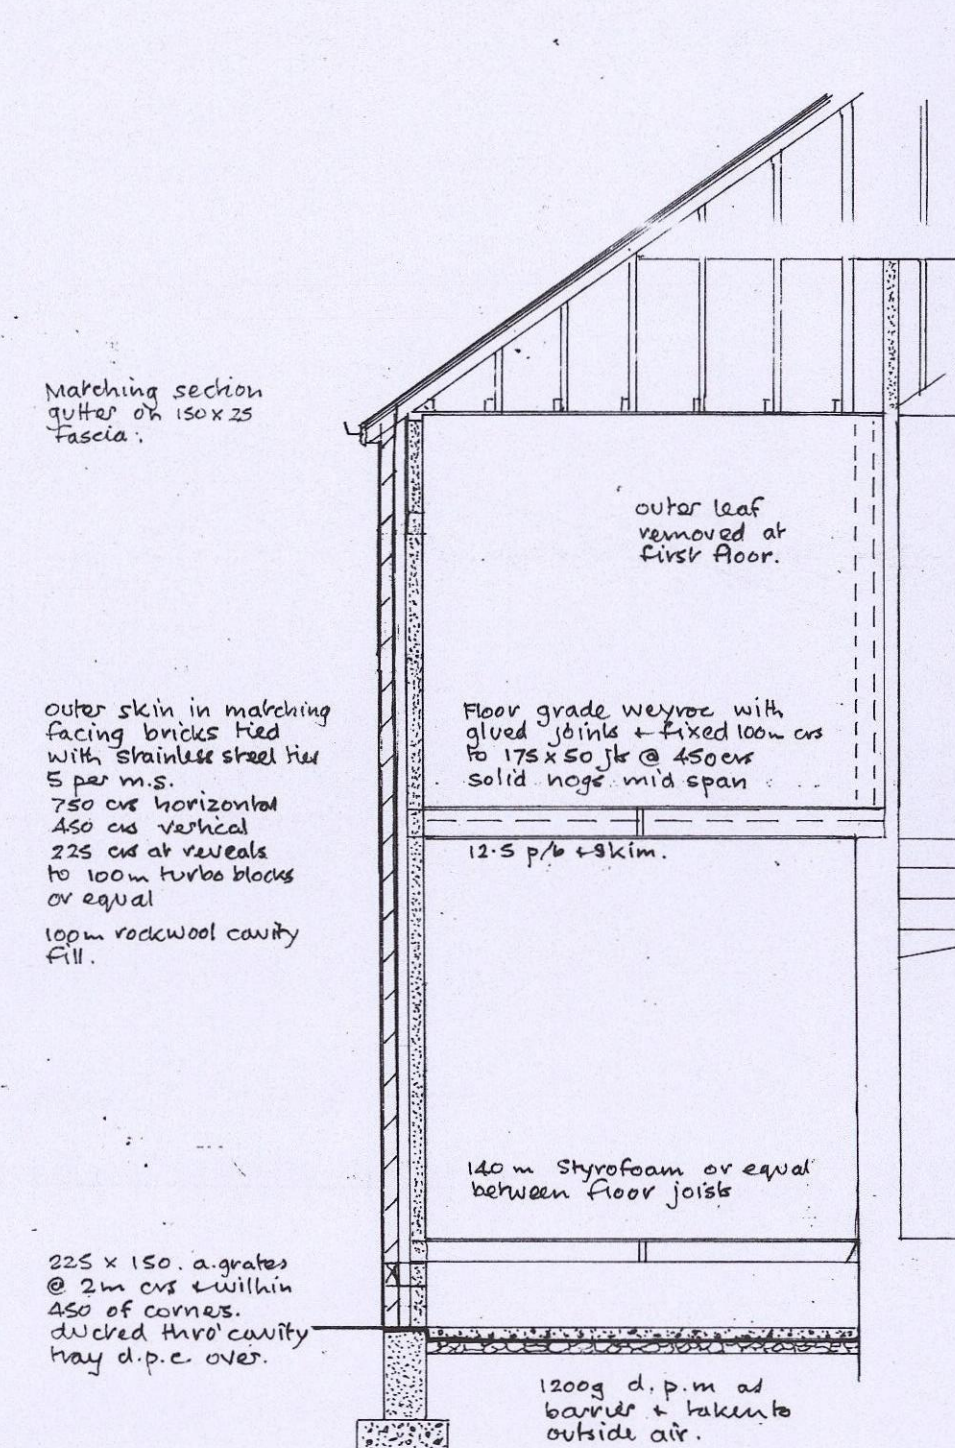 Matching section
gutter on 150 x 25
fascia.
outer leaf
removed at
first floor.
outer skin in matching
facing bricks tied
with stainless steel ties
5 per m.s.
750 crs horizontal
450 crs vertical
225 crs at reveals
to 100m turbo blocks
or equal
100m rockwool cavity
fill.
Floor grade weyroc with
glued joints + fixed 100m crs
to 175 x 50 jts @ 450 crs
solid nogs mid span
12.5 p/b + skim.
140 m Styrofoam or equal
between floor joists
225 x 150. a.grates
@ 2m crs + within
450 of corners.
ducted thro' cavity
tray d.p.c. over.
1200g d.p.m as
barrier + taken to
outside air.